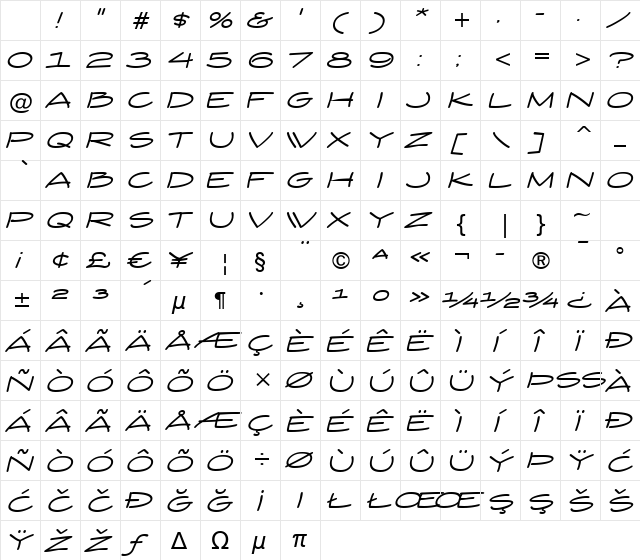 ! " # $ % & ' ( ) * + , - . /
0 1 2 3 4 5 6 7 8 9 : ; < = > ?
@ A B C D E F G H I J K L M N O
P Q R S T U V W X Y Z [ \ ] ^ _
` A B C D E F G H I J K L M N O
P Q R S T U V W X Y Z { | } ~
¡ ¢ £ € ¥ ¦ § ¨ © ª « ¬ - ® ¯ °
± ² ³ ´ µ ¶ · ¸ ¹ º » ¼ ½ ¾ ¿ À
Á Â Ã Ä Å Æ Ç È É Ê Ë Ì Í Î Ï Ð
Ñ Ò Ó Ô Õ Ö × Ø Ù Ú Û Ü Ý Þ SS À
Á Â Ã Ä Å Æ Ç È É Ê Ë Ì Í Î Ï Ð
Ñ Ò Ó Ô Õ Ö ÷ Ø Ù Ú Û Ü Ý Þ Ÿ Ć
Ć Č Č Đ Ğ Ğ İ I Ł Ł Œ Œ Ş Ş Š Š
Ÿ Ž Ž ƒ Δ Ω µ π